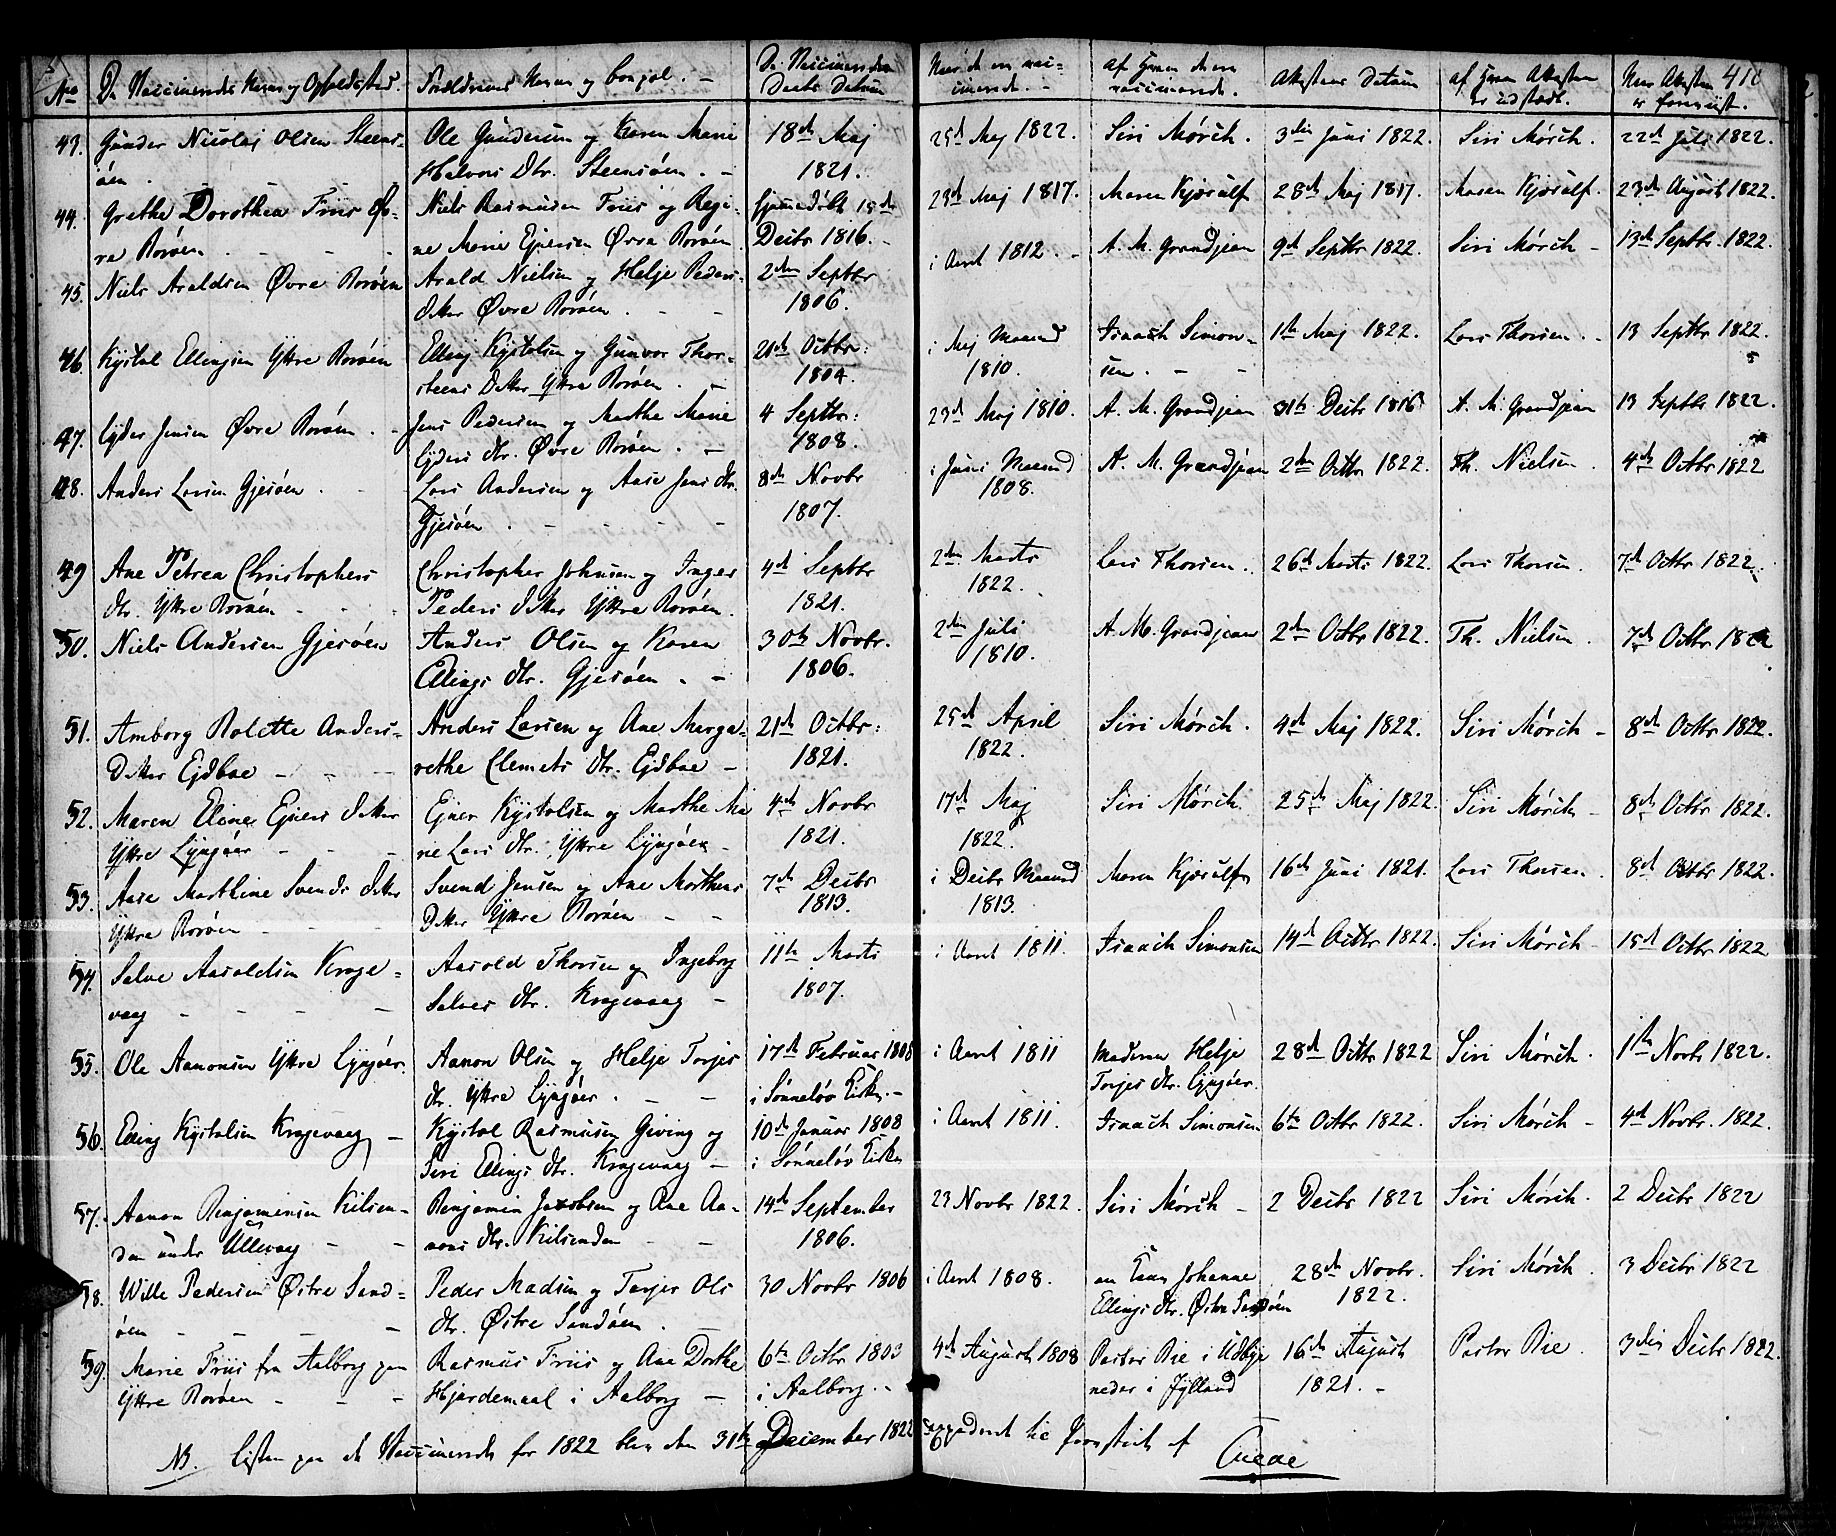 410
No
De Vaccineredes Navne og Opholdssted.
Forældrenes Navne og bopæl. -
De Vaccineredes
Daabs Datum
Naar de ere vacci-
cinerede. -
af hvem de ere
vaccinerede.
Attestens Datum
af hvem Attesten
er udstædt.
Naar Attesten
er foreviist.
43. Gunder Nicolaj Olsen Steens-
øen . - -
Ole Gundersen og Karen Marie
Halvors Dtr. Steensøen . -
18de Maj
1821.
25d Maj 1822.
Siri Mørch .
3die Juni 1822.
Siri Mørch .
22d Juli 1822.
44. Grethe Dorothea Friis Øv-
re Borøen . - - -
Niels Rasmusen Friis og Regi-
ne Marie Ejersen Øvre Borøen.
hjemedøbt 15de
Decbr 1816. -
23d Maj 1817.
Maren Kjørulf
28de Maj 1817.
Maren Kjørulf.
23d August 1822.
45. Niels Araldsen Øvre Borøen
Arald Nielsen og Helje Peders-
datter Øvre Borøen . - -
2den Septbr
1806.
i Aaret 1812. -
A. M. Grandjean
9d Septbr 1822.
Siri Mørch -
13d Septbr. 1822.
46. Kjstol Ellingsen Yttre Borøen
Elling Kjstolsen og Gunvor Thor-
steens Datter Yttre Borøen . -
21de Octbr:
1804.
i Maj Maaned
1810.
Isaach Simon-
sen . - -
1te Maj 1822.
Lars Thorsen . -
13 Septbr 1822.
47. Gjder Jensen Øvre Borøen . -
Jens Pedersen og Marthe Marie
Gjders dtr. Øvre Borøen . -
4 Septbr:
1808.
23d Maj 1810.
A. M. Grandjean
31te Decbr 1816
A. M. Grandjean
13 Septbr 1822.
48. Anders Larsen Gjesøen . -
Lars Andersen og Aase Jens dtr.
Gjesøen . - - - -
8de Novbr
1807.
i Juni Maaned
1808.
A. M. Grandjean
2den Octbr 1822.
Th. Nielsen .
4de Octbr 1822
49 Ane Petrea Christophers
dtr. Yttre Borøen - - -
Christopher Johnsen og Inger
Peders datter Yttre Borøen.
4d Septbr
1821.
2den Marts
1822.
Lars Thorsen .
26d Marts 1822.
Lars Thorsen .
7d Octbr 1822.
50. Niels Andersen Gjesøen
Anders Olsen og Karen
Ellings dtr. Gjesøen . -
30te Novbr.
1806.
2den Juli
1810.
A. M. Grandjean
2den Octbr 1822.
Th. Nielsen .
7de Octbr 1822
51. Amborg Rolette Anders-
Datter Ejdboe - - -
Anders Larsen og Ane Marga-
rethe Clemets dtr. Ejdboe -
21de Octbr:
1821.
25d April
1822.
Siri Mørch .
4de Maj 1822.
Siri Mørch -
8d Octbr 1822.
52. Maren Eline Ejners datter
Yttre Lyngøer - - -
Ejner Kjstolsen og Marthe Ma
rie Lars dtr. Yttre Lyngøer -
4de Novbr
1821.
17d Maj
1822.
Siri Mørch.
25de Maj 1822.
Siri Mørch -
8d Octbr 1822.
53. Aase Marthine Svends datter
Yttre Borøen - - -
Svend Jensen og Ane Morthens
Datter Yttre Borøen - -
7de Decbr
1813.
i Decbr Maaned
1813.
Maren Kjørulf
16de Juni 1821.
Lars Thorsen .
8d Octbr 1822.
54. Salve Aaroldsen Krage-
vaag - - - -
Aarold Thorsen og Ingeborg
Salves dtr. Kragevaag -
11te Marts
1807.
i Aaret 1811.
Isaach Simonsen
14de Octbr 1822.
Siri Mørch -
15d Octbr 1822
55. Ole Aanonsen Yttre Lyngøer.
Aanon Olsen og Helje Torjes
dtr. Yttre Lyngøer . - -
17de Februar 1805
i Sønneløv Kirke. -
i Aaret 1811
Moderen Helje
Torjes dtr. Lyngøer.
28d Octbr 1822
Siri Mørch .
1te Novbr 1822.
56. Elling Kjstolsen Kragevaag -
Kjstol Rasmusen Giving og
Siri Ellings dtr. Kragevaag -
10de Januar 1808
i Sønneløv Kirke
i Aaret 1811.
Isaach Simonsen
6te Octbr 1822.
Siri Mørch -
4d Novbr. 1822.
57. Aanon Benjaminsen Kilsen-
den under Ullevaag - -
Benjamin Jacobsen og Ane Aa-
nons dtr. Kilsenden - -
14de September
1806.
23 Novbr 1822.
Siri Mørch -
2 Decbr 1822
Siri Mørch .
2 Decbr 1822
58. Wille Pedersen Østre Sand-
øen - - - -
Peder Madsen og Torjer Ols
dtr. Østre Sandøen . -
30 Novbr 1806
i Aaret 1808.
en Kone Johanne
Ellings dtr. Østre Sandøen
28de Novbr.
1822.
Siri Mørch
3 Decbr 1822
59. Marie Friis fra Aalborg paa
Yttre Borøen - - -
Rasmus Friis og Ane Dorthe
Hjardemaal i Aalborg -
6te Octbr 1803
i Aalborg. -
4d August 1808
Pastor Bie i Udbye
neder i Jylland
16de August
1821. -
Pastor Bie .
3die Decbr 1822.
NB. Listen paa de Vaccinerede for 1822 blev den 31te December 1822 expederet til Provsten af
Tuede